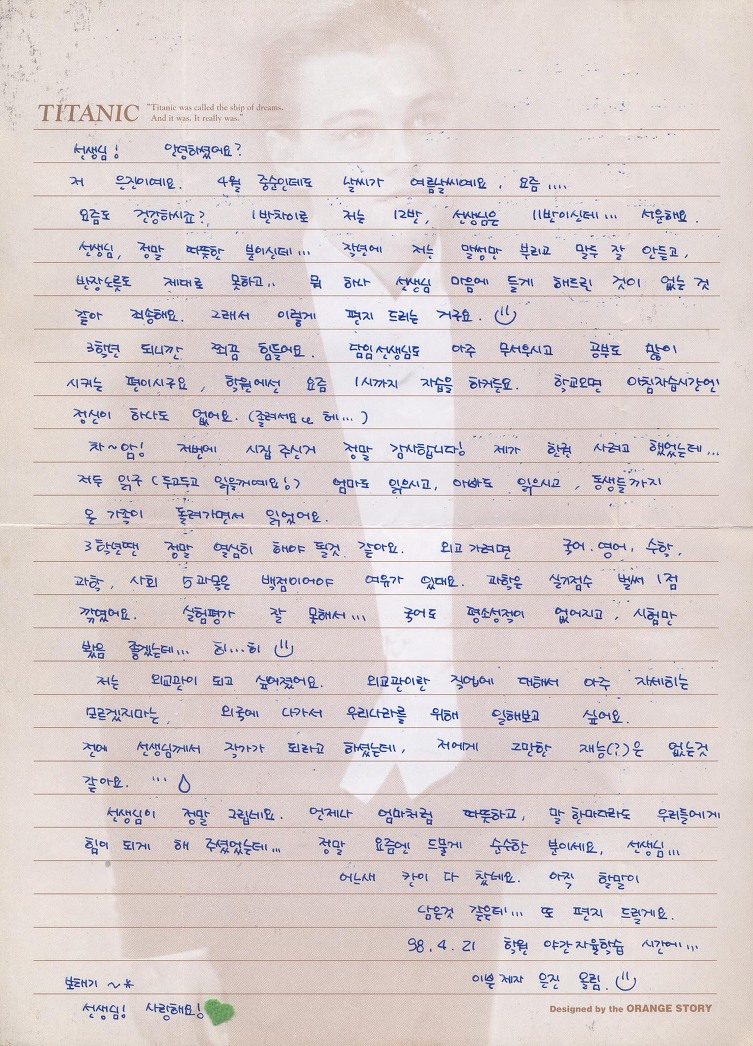 TITANIC "Titanic was called the ship of dreams.
And it was. It really was."
선생님! 안녕하셨어요?
저 은진이예요. 4월 중순인데도 날씨가 여름날씨예요, 요즘....
요즘도 건강하시죠?, 1반차이로 저는 12반, 선생님은 11반이신데... 서운해요.
선생님, 정말 따뜻한 분이신데... 작년에 저는 말썽만 부리고 말두 잘 안듣고,
반장노릇도 제대로 못하고.. 뭐 하나 선생님 마음에 들게 해드린 것이 없는 것
같아 죄송해요. 그래서 이렇게 편지 드리는 거구요.
3학년 되니깐 쬐끔 힘들어요. 담임선생님도 아주 무서우시고 공부도 많이
시키는 편이시구요, 학원에선 요즘 1시까지 자습을 하거든요. 학교오면 아침자습시간엔
정신이 하나도 없어요. (졸려서요 헤...)
차~암! 저번에 시집 주신거 정말 감사합니다! 제가 한권 사려고 했었는데...
저두 읽구 (두고두고 읽을꺼예요!) 엄마도 읽으시고, 아빠도 읽으시고, 동생들까지
온 가족이 돌려가면서 읽었어요.
3학년땐 정말 열심히 해야 될것 같아요. 외고 가려면 국어, 영어, 수학,
과학, 사회 5과목은 백점이어야 여유가 있대요. 과학은 실기점수 벌써 1점
깎였어요. 실험평가 잘 못해서... 국어도 평소성적이 없어지고, 시험만
봤음 좋겠는데... 히...히
저는 외교관이 되고 싶어졌어요. 외교관이란 직업에 대해서 아주 자세히는
모르겠지마는, 외국에 나가서 우리나라를 위해 일해보고 싶어요.
전에 선생님께서 작가가 되라고 하셨는데, 저에게 그만한 재능(?)은 없는것
같아요. ...
선생님이 정말 그립네요. 언제나 엄마처럼 따뜻하고, 말 한마디라도 우리들에게
힘이 되게 해 주셨었는데... 정말 요즘엔 드물게 순수한 분이세요, 선생님...
어느새 칸이 다 찼네요. 아직 할말이
남은것 같은데... 또 편지 드릴게요.
98.4.21 학원 야간자율학습 시간에...
이쁜제자 은진 올림.
보태기 ~*
선생님! 사랑해요!
Designed by the ORANGE STORY